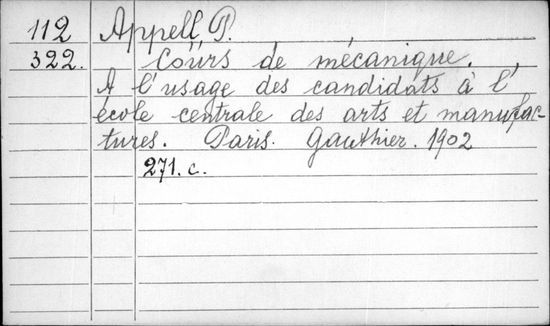 112 Appell, P.
322. Cours de mécanique.
A l'usage des candidats à l'
école centrale des arts et manufac-
tures. Paris. Gauthier. 1902
271. c.